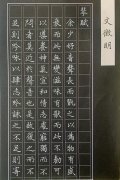 文徵明
琴賦
余少好音聲長而翫之以為物有盛
衰而此無變滋味有猒而此不勌可
以導養神氣宣和情志處窮獨而不
悶者莫近於音聲也是故復之而不
足則吟詠以肆志吟詠之不足則寄